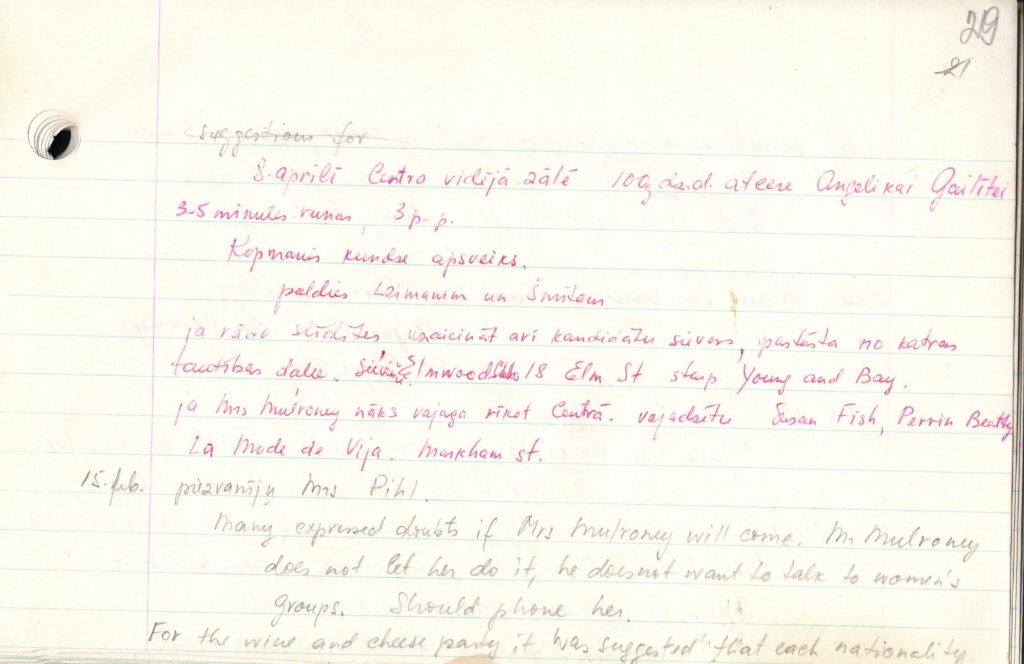 29
21
suggestions for
8. aprīlī Centra vidējā zālē 100g dz.d. atcere Angelikai Gailītei
3-5 minūtes runas, 3 p.p.
Kopmanis kundze apsveiks.
paldies Leimanim un Šmitam
ja rāda slīdītes uzaicināt arī kandidātu sievas, pastāsta no katras
tautības daļu. Elmwood Club 18 Elm St starp Young and Bay.
ja Mrs Mulroney nāks vajaga rīkot Centrā. vajadzētu Susan Fish, Perrin Beatty
La Mode de Vija. Markham st.
15. feb. piezvanīju Mrs Pihl.
Many expressed doubts if Mrs Mulroney will come. Mr Mulroney
does not let her do it, he does not want to talk to women's
groups. Should phone her.
For the wine and cheese party it was suggested that each nationality